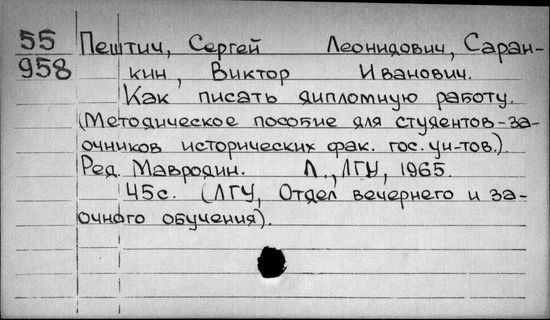 55 Пештич, Сергей Леонидович, Саран-
958 кин, Виктор Иванович.
Как писать дипломную работу.
(Методическое пособие для студентов-за-
очников исторических фак. гос. ун-тов.).
Ред. Мавродин. Л., ЛГУ, 1965.
45с. (ЛГУ, Отдел вечернего и за-
очного обучения).